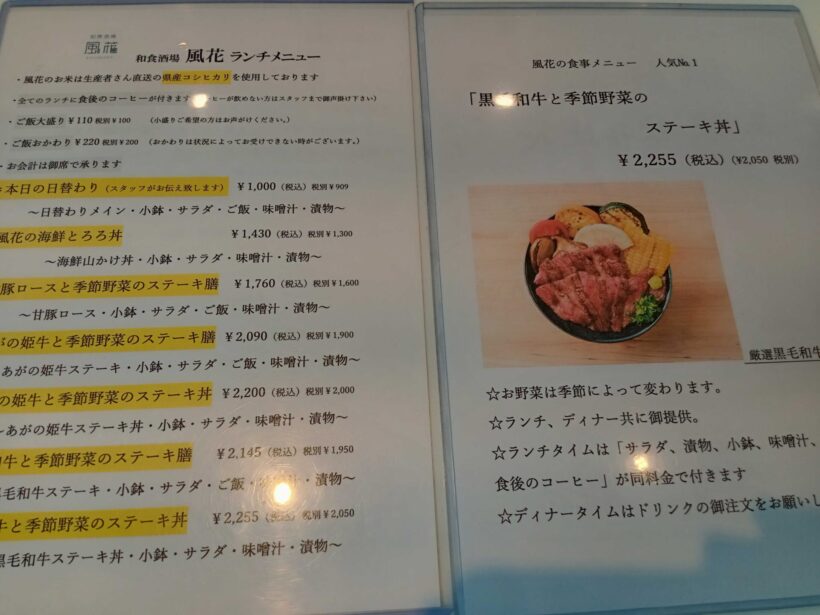 和食酒場
風花
和食酒場 風花 ランチメニュー
・風花のお米は生産者さん直送の県産コシヒカリを使用しております
・全てのランチに食後のコーヒーが付きます ーヒーが飲めない方はスタッフまで御声掛け下さい）
・ご飯大盛り￥110 税別￥100 （小盛りご希望の方はお声がけください。）
・ご飯おかわり￥220 税別￥200 （おかわりは状況によってお受けできない時がございます。）
・お会計は御席で承ります
本日の日替わり（スタッフがお伝え致します） ￥1,000（税込）税別￥909
～日替わりメイン・小鉢・サラダ・ご飯・味噌汁・漬物～
風花の海鮮とろろ丼 ￥1,430（税込）税別￥1,300
～海鮮山かけ丼・小鉢・サラダ・味噌汁・漬物～
豚ロースと季節野菜のステーキ膳 ￥1,760（税込）税別￥1,600
～甘豚ロース・小鉢・サラダ・ご飯・味噌汁・漬物～
の姫牛と季節野菜のステーキ膳 ￥2,090（税込）税別￥1,900
あがの姫牛ステーキ・小鉢・サラダ・ご飯・味噌汁・漬物～
の姫牛と季節野菜のステーキ丼 ￥2,200（税込）税別￥2,000
～あがの姫牛ステーキ丼・小鉢・サラダ・味噌汁・漬物～
和牛と季節野菜のステーキ膳 ￥2,145（税込）税別￥1,950
毛和牛ステーキ・小鉢・サラダ・ご飯・味噌汁・漬物～
牛と季節野菜のステーキ丼 ￥2,255（税込）税別￥2,050
黒毛和牛ステーキ丼・小鉢・サラダ・味噌汁・漬物～
風花の食事メニュー 人気№1
「黒毛和牛と季節野菜の
ステーキ丼」
￥2,255（税込）（￥2,050 税別）
厳選黒毛和牛
☆お野菜は季節によって変わります。
☆ランチ、ディナー共に御提供。
☆ランチタイムは「サラダ、漬物、小鉢、味噌汁、
食後のコーヒー」が同料金で付きます
☆ディナータイムはドリンクの御注文をお願いし